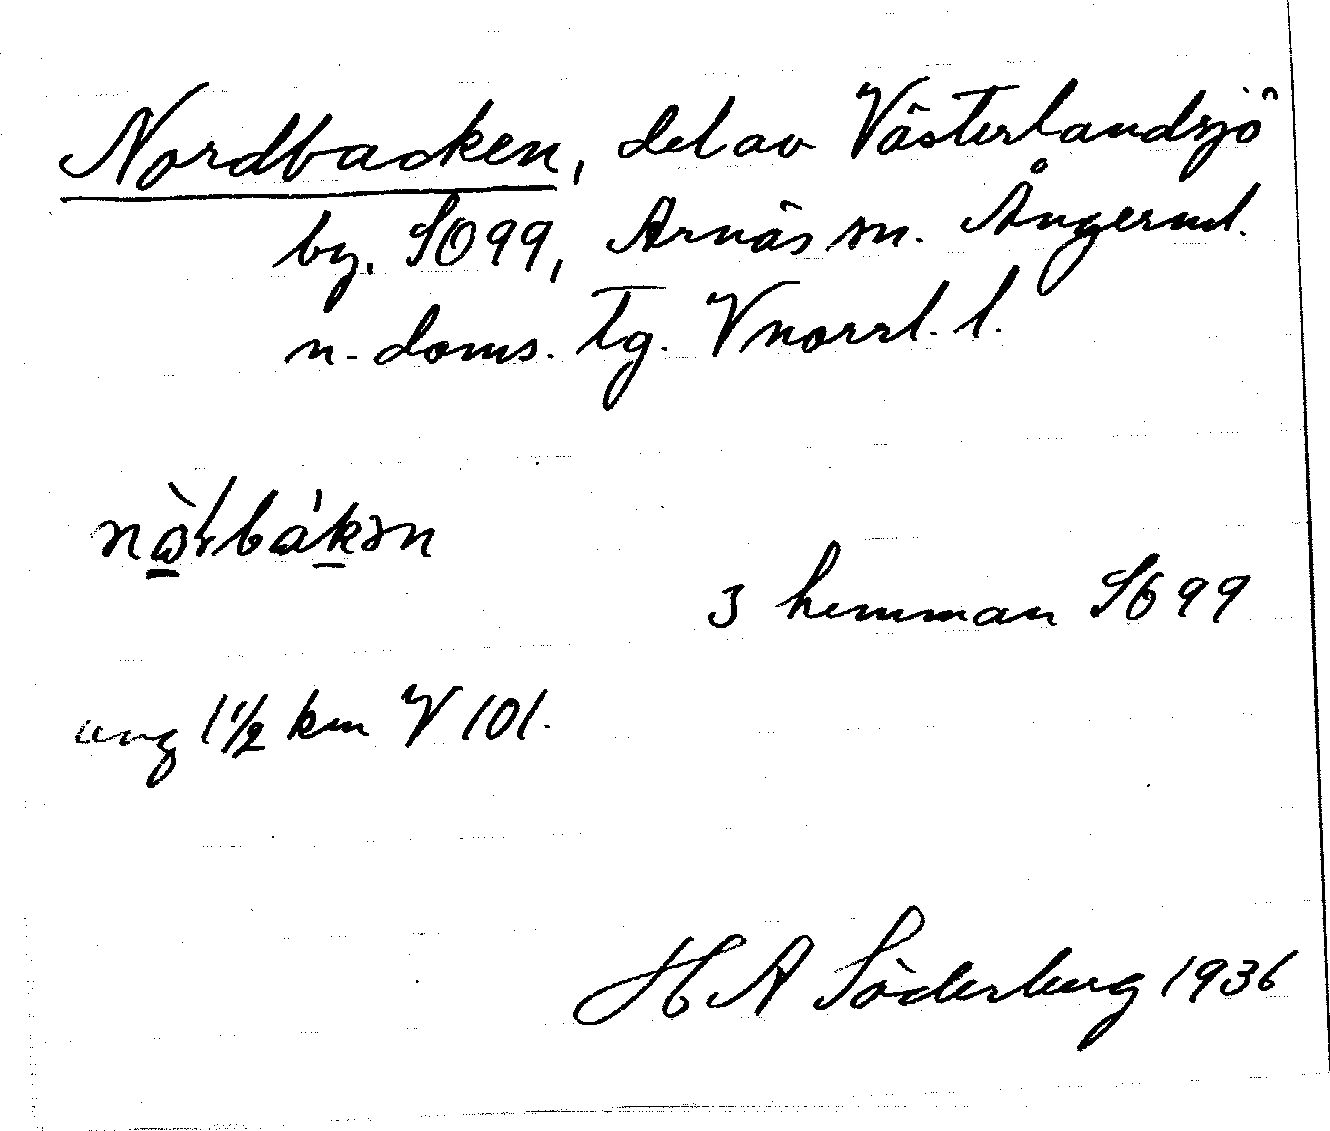 Nordbacken, del av Västerlandsjö
by. SO 99, Arnäs sn. Ångerml.
n. doms. tg. Vnorrl. l.
3 hemman SO 99
ung 1 1/2 km V 101.
H A Söderberg 1936